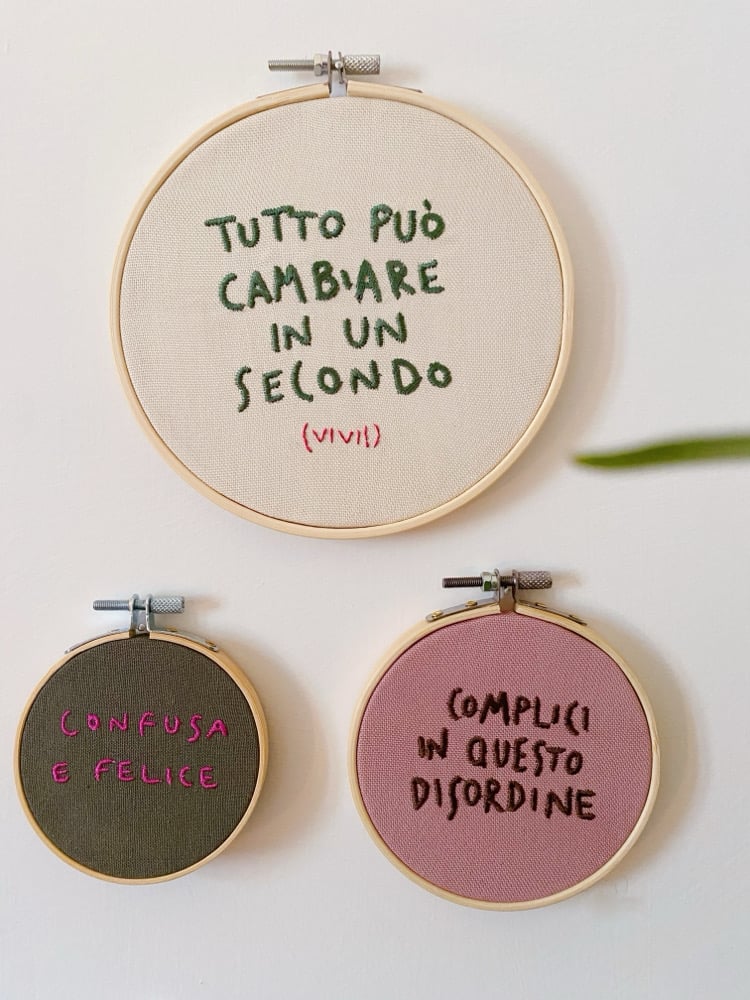 TUTTO PUÒ
CAMBIARE
IN UN
SECONDO
(VIVI!)
CONFUSA
E FELICE
COMPLICI
IN QUESTO
DISORDINE